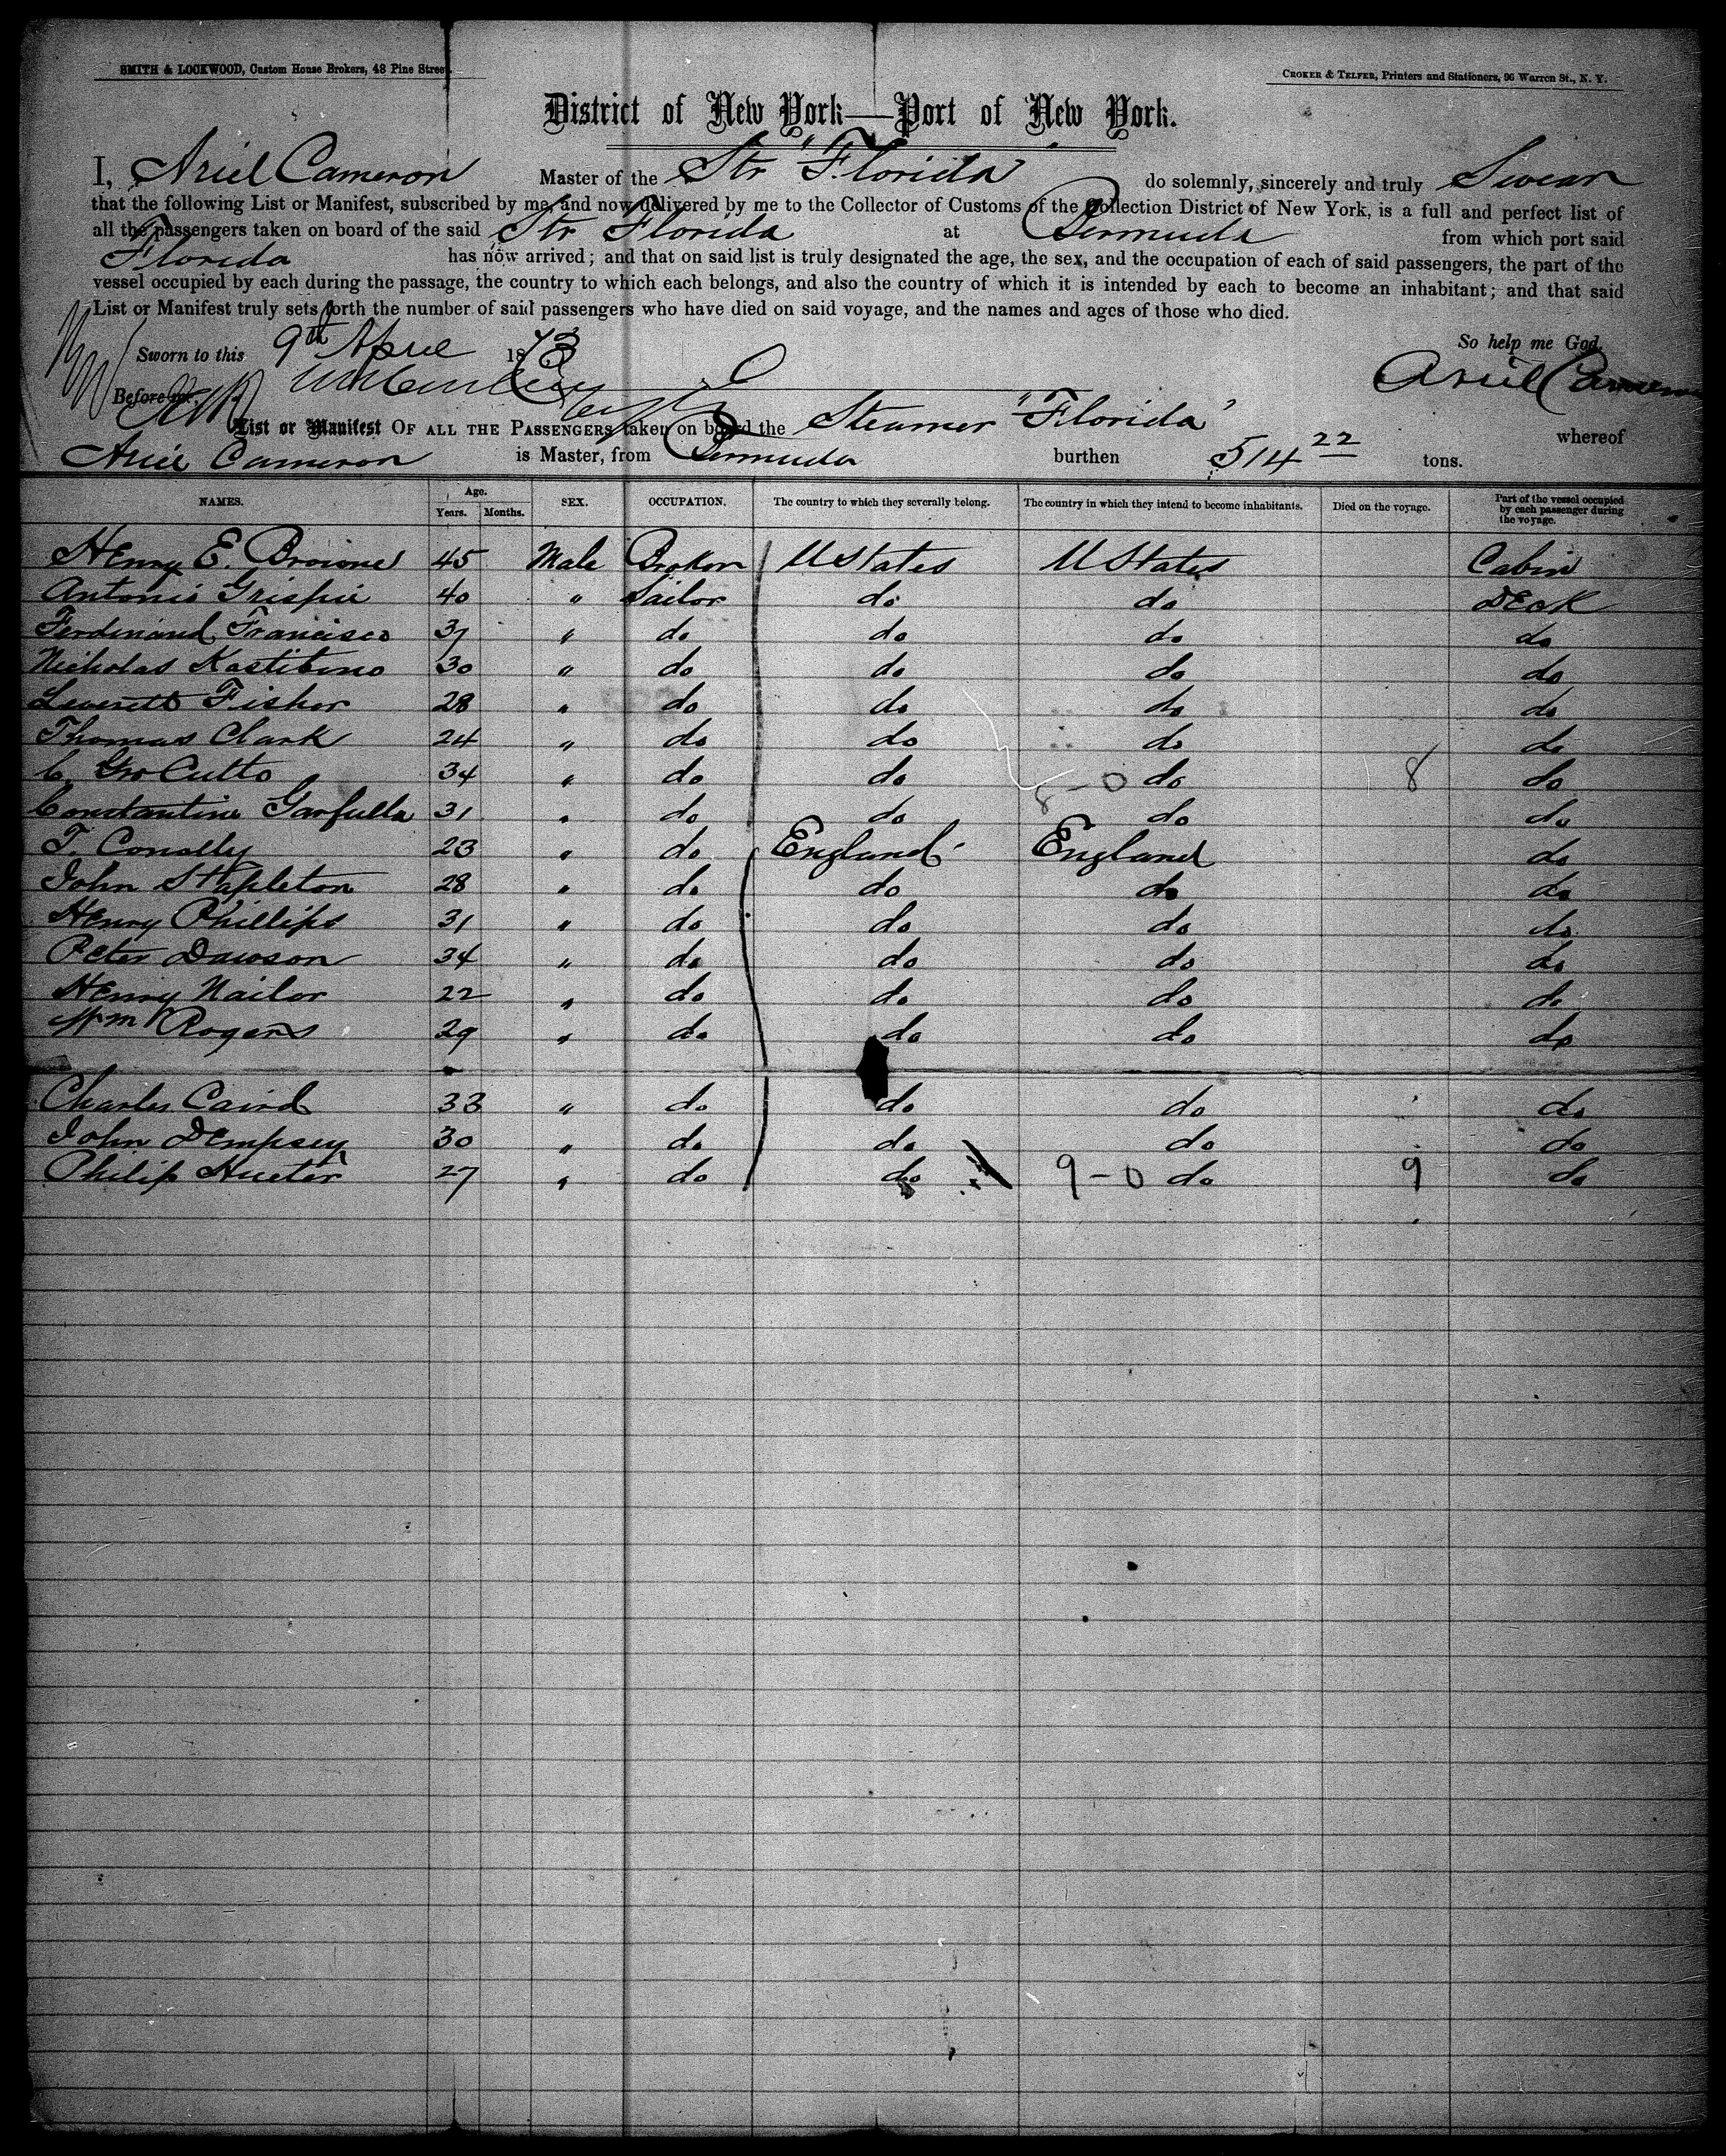 SMITH & LOCKWOOD, Custom House Brokers, 48 Pine Street.
CROKER & TELFER, Printers and Stationers, 96 Warren St., N. Y.
District of New York—Port of New York.
I, Ariel Cameron Master of the Str "Florida" do solemnly, sincerely and truly Swear
that the following List or Manifest, subscribed by me, and now delivered by me to the Collector of Customs of the Collection District of New York, is a full and perfect list of
all the passengers taken on board of the said Str Florida at Bermuda from which port said
Florida has now arrived; and that on said list is truly designated the age, the sex, and the occupation of each of said passengers, the part of the
vessel occupied by each during the passage, the country to which each belongs, and also the country of which it is intended by each to become an inhabitant; and that said
List or Manifest truly sets forth the number of said passengers who have died on said voyage, and the names and ages of those who died.
So help me God.
Sworn to this 9th April 1873
Ariel Cameron
Before me,
List or Manifest OF ALL THE PASSENGERS taken on board the Steamer "Florida" whereof
Ariel Cameron is Master, from Bermuda burthen 514 22 tons.
NAMES. Age. Years. Months. SEX. OCCUPATION. The country to which they severally belong. The country in which they intend to become inhabitants. Died on the voyage. Part of the vessel occupied by each passenger during the voyage.
Henry E. Browne 45 Male Broker U States U States Cabin
Antonio 40 " Sailor do do Deck
Ferdinand Francisco 37 " do do do do
Nicholas Kastibino 30 " do do do do
Leverett Fisher 28 " do do do do
Thomas Clark 24 " do do do do
C. Cutts 34 " do do 8-0 do 8 do
Constantine Garfulla 31 " do do do do
T. Conolly 23 " do England England do
John Stapleton 28 " do do do do
Henry Phillips 31 " do do do do
Peter Dawson 34 " do do do do
Henry Nailor 22 " do do do do
Wm Rogers 29 " do do do do
Charles Caird 33 " do do do do
John Dempsey 30 " do do do do
Philip Hueter 27 " do do 9-0 do 9 do